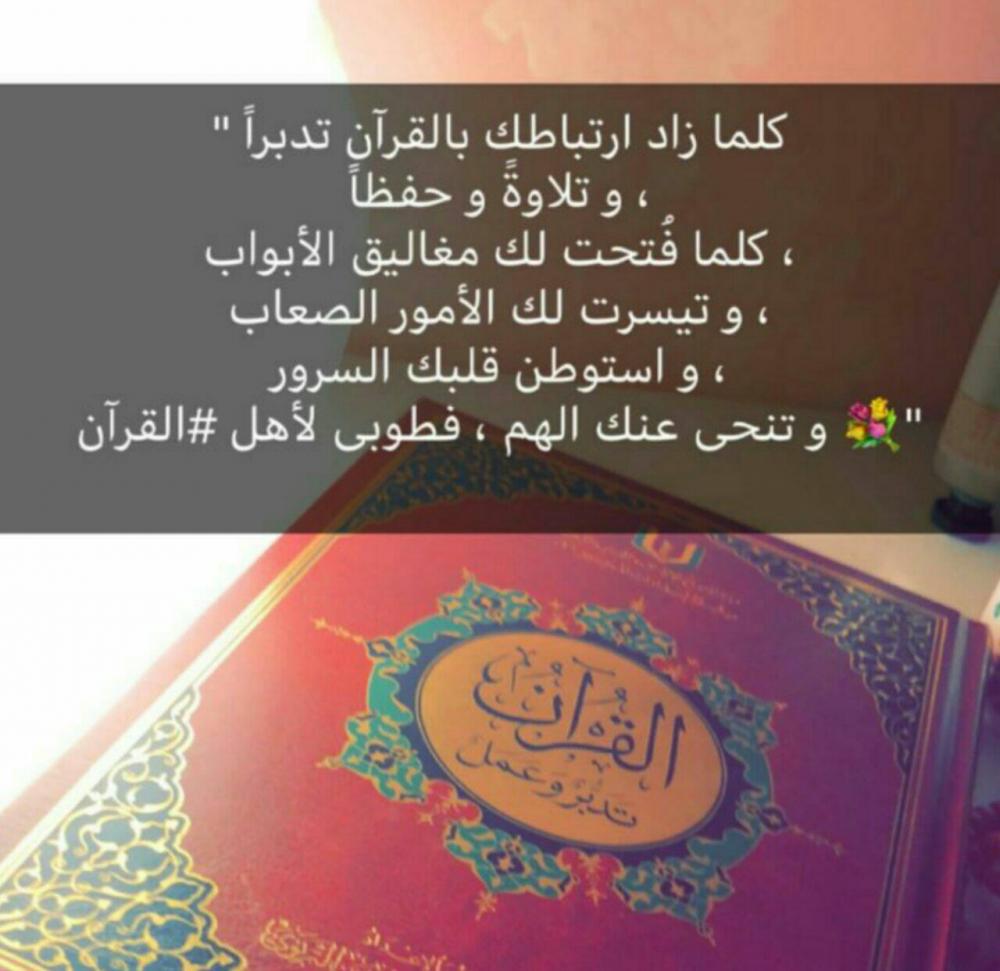 كلما زاد ارتباطك بالقرآن تدبراً "
، و تلاوةً و حفظاً
، كلما فُتحت لك مغاليق الأبواب
، و تيسرت لك الأمور الصعاب
، و استوطن قلبك السرور
"💐 و تنحى عنك الهم ، فطوبى لأهل #القرآن
القرآن
تدبر وعمل